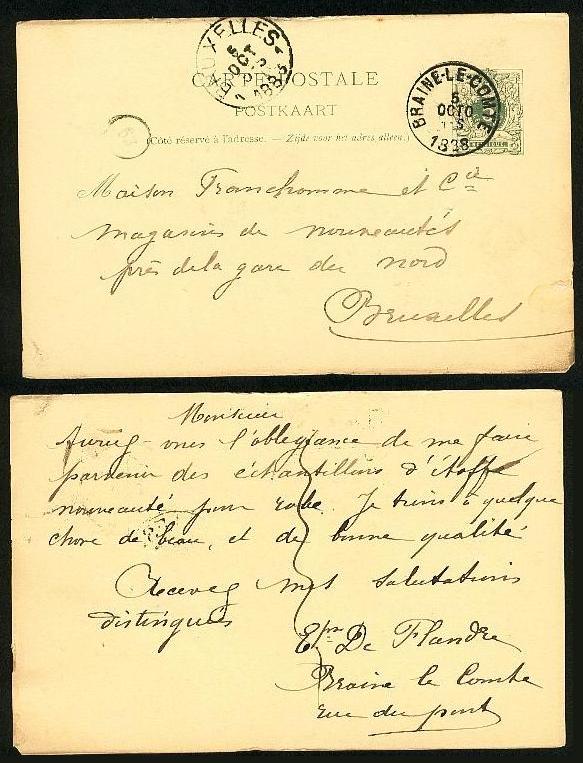 BRUXELLES
5 OCT
CARTE POSTALE
POSTKAART
(Côté réservé à l'adresse. — Zijde voor het adres alleen.)
BRAINE-LE-COMTE
5
OCTO
1888
BELGIQUE
Maison Franchomme et Cie
magasins de nouveautés
près de la gare du nord
Bruxelles
Monsieur
Auriez-vous l'obligeance de me faire
parvenir des échantillons d'étoffe
nouveauté pour robe. Je tiens à quelque
chose de beau, et de bonne qualité
Recevez mes salutations
distinguées
De Flandre
Braine le Comte
rue du pont